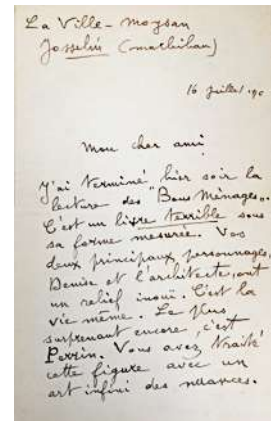 La Ville-Moysan
Josselin (Morbihan)
16 juillet 190
Mon cher ami
J'ai terminé hier soir la
lecture des "Bons Ménages".
C'est un livre terrible sous
sa forme mesurée. Vos
deux principaux personnages,
Denise et l'architecte, ont
un relief inouï. C'est la
vie même. Le plus
surprenant encore, c'est
Perrin. Vous avez traité
cette figure avec un
art infini des nuances.